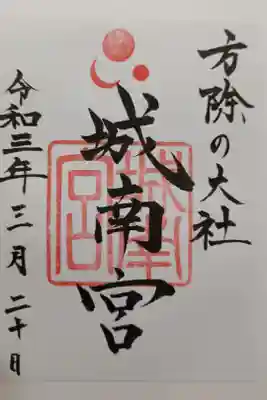 方除の大社
城南宮
令和三年三月二十日